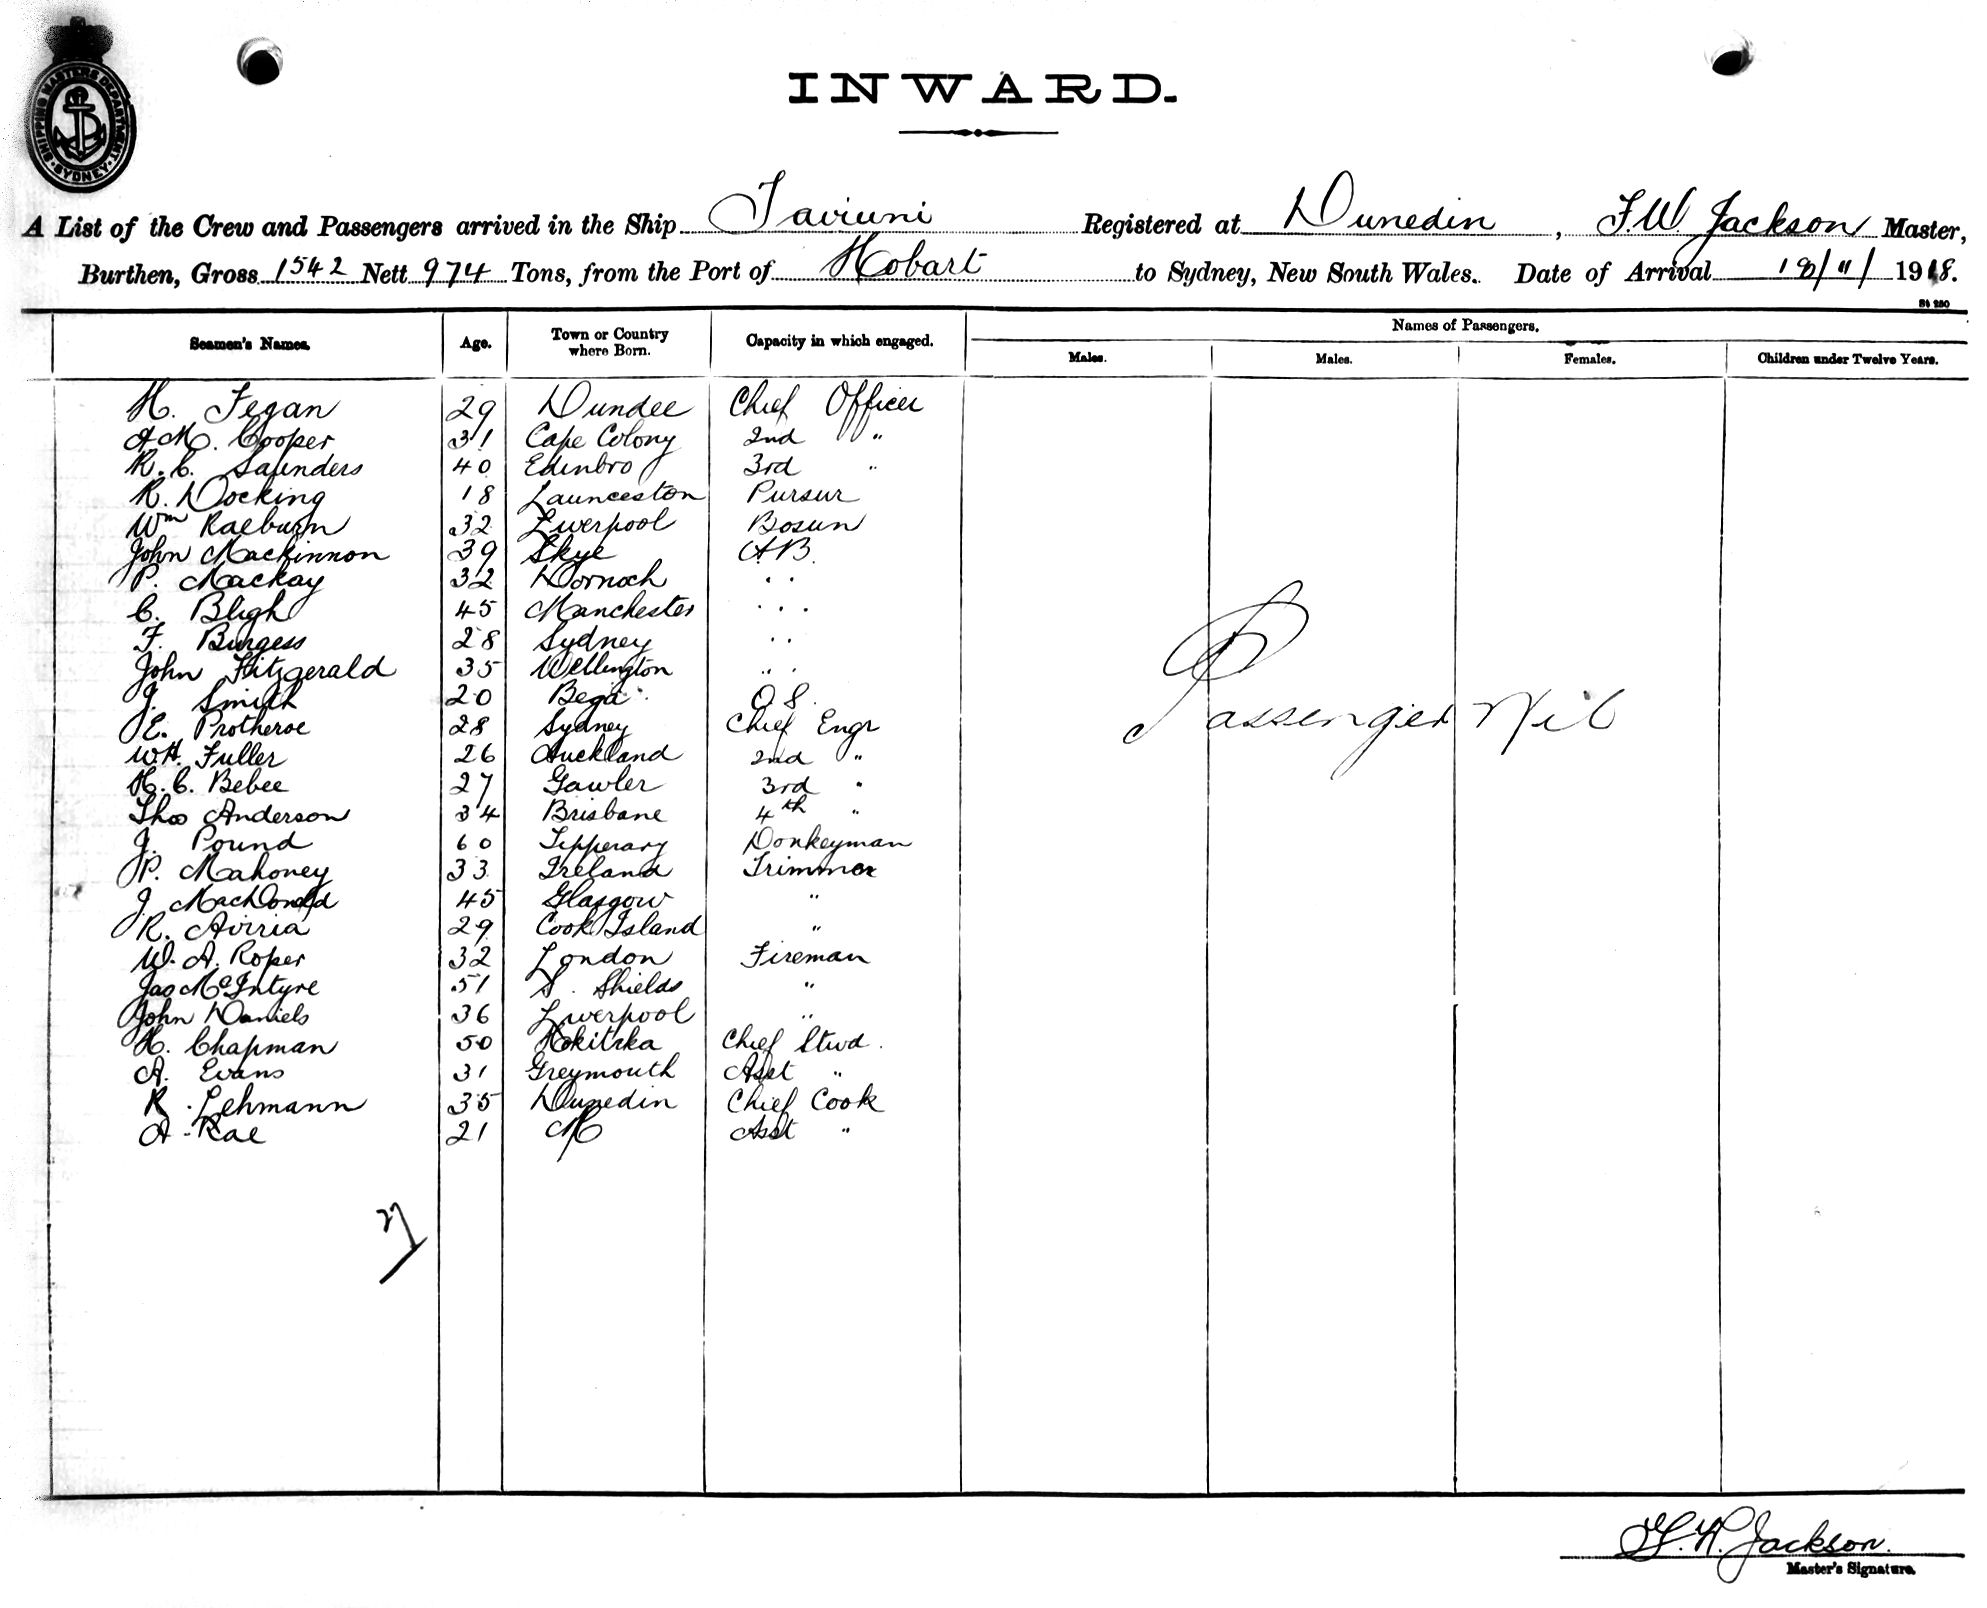 SHIPPING MASTERS DEPARTMENT · SYDNEY ·
INWARD.
A List of the Crew and Passengers arrived in the Ship Taviuni Registered at Dunedin, F.W. Jackson Master,
Burthen, Gross 1542 Nett 974 Tons, from the Port of Hobart to Sydney, New South Wales. Date of Arrival 18/11/1918.
St 280
Seamen's Names. Age. Town or Country where Born. Capacity in which engaged. Names of Passengers.
Males. Males. Females. Children under Twelve Years.
H. Fegan 29 Dundee Chief Officer
A M. Cooper 31 Cape Colony 2nd "
R. C. Saunders 40 Edinbro 3rd "
R. Docking 18 Launceston Pursur
Wm Raeburn 32 Liverpool Bosun
John Mackinnon 39 Skye A.B.
P. Mackay 32 Dornoch . .
C. Bligh 45 Manchester . . .
F. Burgess 28 Sydney . .
John Fitzgerald 35 Wellington .. .
J. Smith 20 Bega O.S.
E. Protheroe 28 Sydney Chief Engr
W.H. Fuller 26 Auckland 2nd "
H. C. Bebee 27 Gawler 3rd "
Thos Anderson 34 Brisbane 4th "
J. Pound 60 Tipperary Donkeyman
P. Mahoney 33 Ireland Trimmer
J. MacDonald 45 Glasgow "
R. Aviria 29 Cook Island "
W. A. Roper 32 London Fireman
Jas McIntyre 51 S. Shields "
John Daniels 36 Liverpool "
H. Chapman 50 Hokitika Chief Stwd.
A. Evans 31 Greymouth Asst "
R. Lehmann 35 Dunedin Chief Cook
A. Rae 21 Asst "
Passenger Nil
27
F. W. Jackson.
Master's Signature.